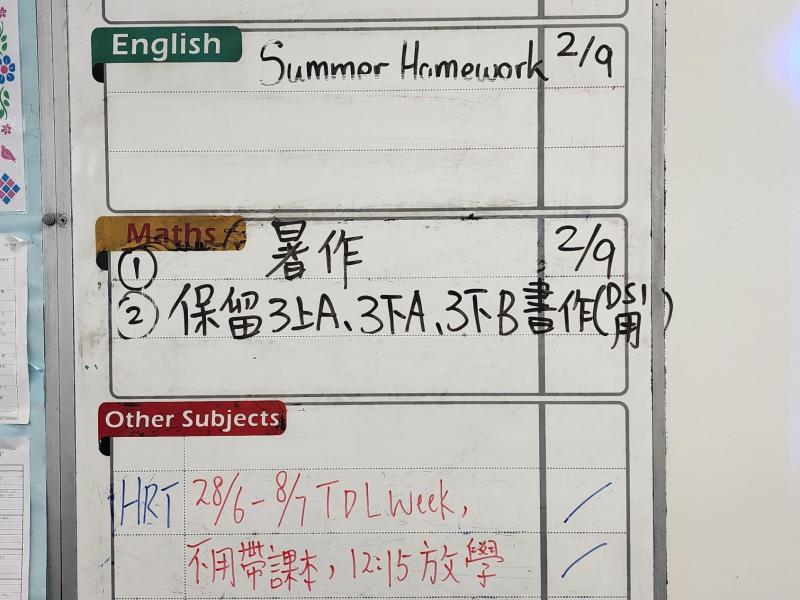 English
Summer Homework 2/9
Maths
① 暑作 2/9
② 保留3上A、3下A、3下B書作(DSI用)
Other Subjects
HRT 28/6-8/7 TDL Week,
不用帶課本, 12:15放學